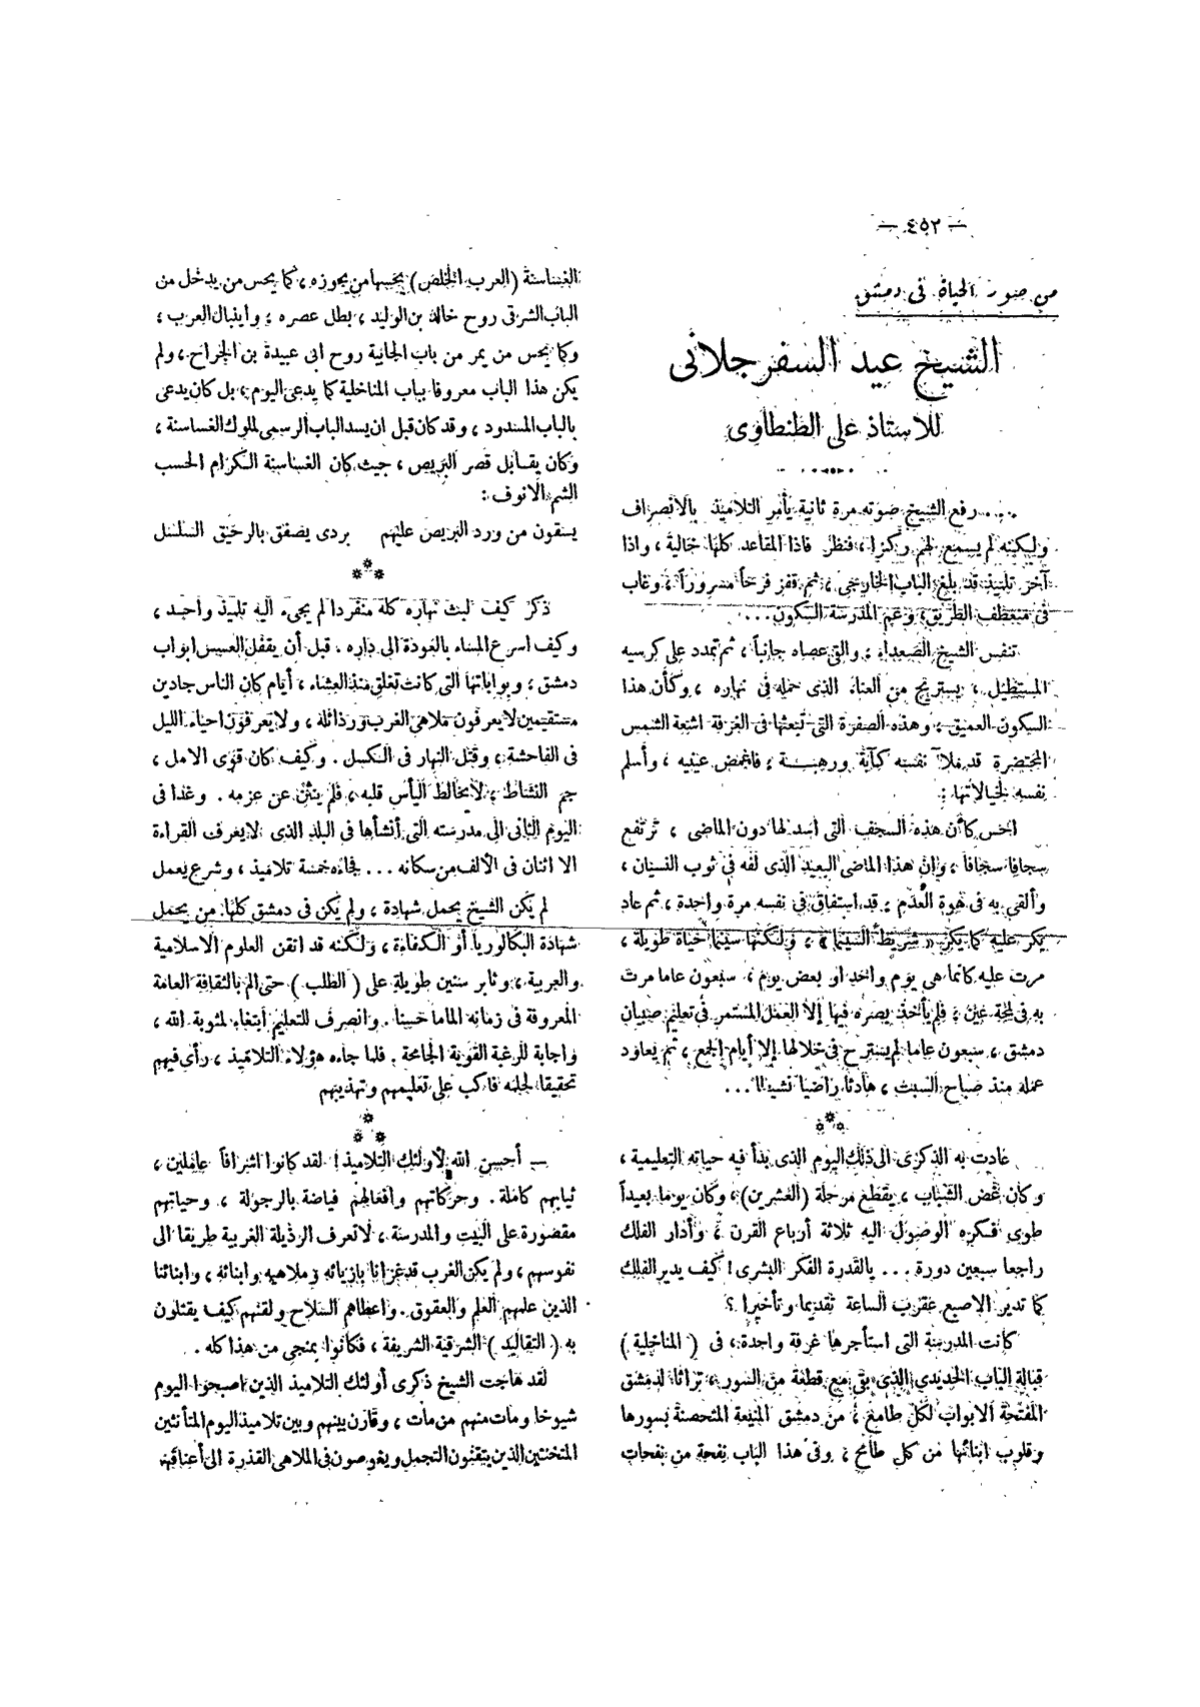 — ٤٥٢ —
من صور الحياة فى دمشق
الشيخ عيد السفرجلانى
للاستاذ على الطنطاوى
.... رفع الشيخ صوته مرة ثانية يأمر التلاميذ بالانصراف
ولكنه لم يسمع لهم ركزا ، فنظر فاذا المقاعد كلها خالية ، واذا
آخر تلميذ قد بلغ الباب الخارجى ، ثم قفز فرحاً مسروراً ، وغاب
فى منعطف الطريق، وعم المدرسة السكون...
تنفس الشيخ الصعداء ، والقى عصاه جانباً ، ثم تمدد على كرسيه
المستطيل ، يستريح من العناء الذى حمله فى نهاره ، وكأن هذا
السكون العميق ، وهذه الصفرة التى تبعثها فى الغرفة اشعة الشمس
المحتضرة قد ملآ نفسه كآبة ورهبة ، فاغمض عينيه ، وأسلم
نفسه لخيالاتها :
احس كأن هذه السجف التى اسدلها دون الماضى ، ترتفع
سجافا سجافا ، وان هذا الماضى البعيد الذى لفه فى ثوب النسيان ،
وألقى به فى هوة العُدم ، قد استفاق فى نفسه مرة واحدة ، ثم عاد
يكر عليه كما يكر « شريط السينما » ، ولكنها سينما حياة طويلة ،
مرت عليه كانما هى يوم واحد او بعض يوم ، سبعون عاما مرت
به فى لمحة عين ، فلم يأخذ بصره فيها إلا العمل المستمر فى تعليم صبيان
دمشق ، سبعون عاما لم يسترح فى خلالها إلا أيام الجمع ، ثم يعاود
عمله منذ صباح السبت ، هادئا راضيا نشيطا ...
***
عادت به الذكرى الى ذلك اليوم الذى بدأ فيه حياته التعليمية ،
وكان غض الشباب ، يقطع مرحلة (العشرين)، وكان يوما بعيداً
طوى فكره الوصول اليه ثلاثة أرباع القرن ، وأدار الفلك
راجعا سبعين دورة ... يالقدرة الفكر البشرى ! كيف يدير الفلك
كما تدير الاصبع عقرب الساعة تقديما وتأخيرا ؟
كانت المدرسة التى استأجرها غرفة واحدة ، فى ( المناخلية )
قبالة الباب الحديدي الذى بقى مع قطعة من السور ، تراثا لدمشق
المفتحة الابواب لكل طامع ، من دمشق المنيعة المتحصنة بسورها
وقلوب ابنائها من كل طامح ، وفى هذا الباب نفحة من نفحات
الغساسنة (العرب الخلص) يحسها من يجوزه ، كما يحس من يدخل من
الباب الشرقى روح خالد بن الوليد ، بطل عصره ، وأينبال العرب ،
وكما يحس من يمر من باب الجابية روح ابى عبيدة بن الجراح ، ولم
يكن هذا الباب معروفا بباب المناخلية كما يدعى اليوم ، بل كان يدعى
بالباب المسدود ، وقد كان قبل ان يسد الباب الرسمى لملوك الغساسنة ،
وكان يقابل قصر البريص ، حيث كان الغساسنة الكرام الحسب
الشم الانوف :
يسقون من ورد البريص عليهم     بردى يصفق بالرحيق السلسل
***
ذكر كيف لبث نهاره كله منفردا لم يجىء اليه تلميذ واحد ،
وكيف اسرع المساء بالعودة الى داره ، قبل أن يقفل العسس ابواب
دمشق ، وبواباتها التى كانت تغلق منذ العشاء ، أيام كان الناس جادين
مستقيمين لا يعرفون ملاهى الغرب ورذائله ، ولا يعرفون احياء الليل
فى الفاحشة ، وقتل النهار فى الكسل . وكيف كان قوى الامل ،
جم النشاط ، لا يخالط اليأس قلبه ، فلم ينثن عن عزمه . وغدا فى
اليوم الثانى الى مدرسته التى أنشأها فى البلد الذى لا يعرف القراءة
الا اثنان فى الألف من سكانه ... فجاءه خمسة تلاميذ ، وشرع يعمل
لم يكن الشيخ يحمل شهادة ، ولم يكن فى دمشق كلها من يحمل
شهادة البكالوريا أو الكفاءة ، ولكنه قد اتقن العلوم الاسلامية
والعربية ، وثابر سنين طويلة على ( الطلب ) حتى الم بالثقافة العامة
المعروفة فى زمانه الماما حسنا . وانصرف للتعليم ابتغاء لمثوبة الله ،
واجابة للرغبة القوية الجامحة . فلما جاءه هؤلاء التلاميذ ، رأى فيهم
تحقيقا لحلمه فاكب على تعليمهم وتهذيبهم
***
— أحسن الله لأولئك التلاميذ ! لقد كانوا اشرافاً عاملين ،
ثيابهم كاملة . وحركاتهم وافعالهم فياضة بالرجولة ، وحياتهم
مقصورة على البيت والمدرسة ، لا تعرف الرذيلة الغربية طريقا الى
نفوسهم ، ولم يكن الغرب قد غزانا بازيائه وملاهيه وابنائه ، وابنائنا
الذين علمهم العلم والعقوق . واعطاهم السلاح ولقنهم كيف يقتلون
به ( التقاليد ) الشرقية الشريفة ، فكانوا بمنجى من هذا كله .
لقد هاجت الشيخ ذكرى أولئك التلاميذ الذين اصبحوا اليوم
شيوخا ومات منهم من مات ، وقارن بينهم وبين تلاميذ اليوم المتأنثين
المتخنثين الذين يتقنون التجمل ويغوصون فى الملاهى القذرة الى أعناقهم